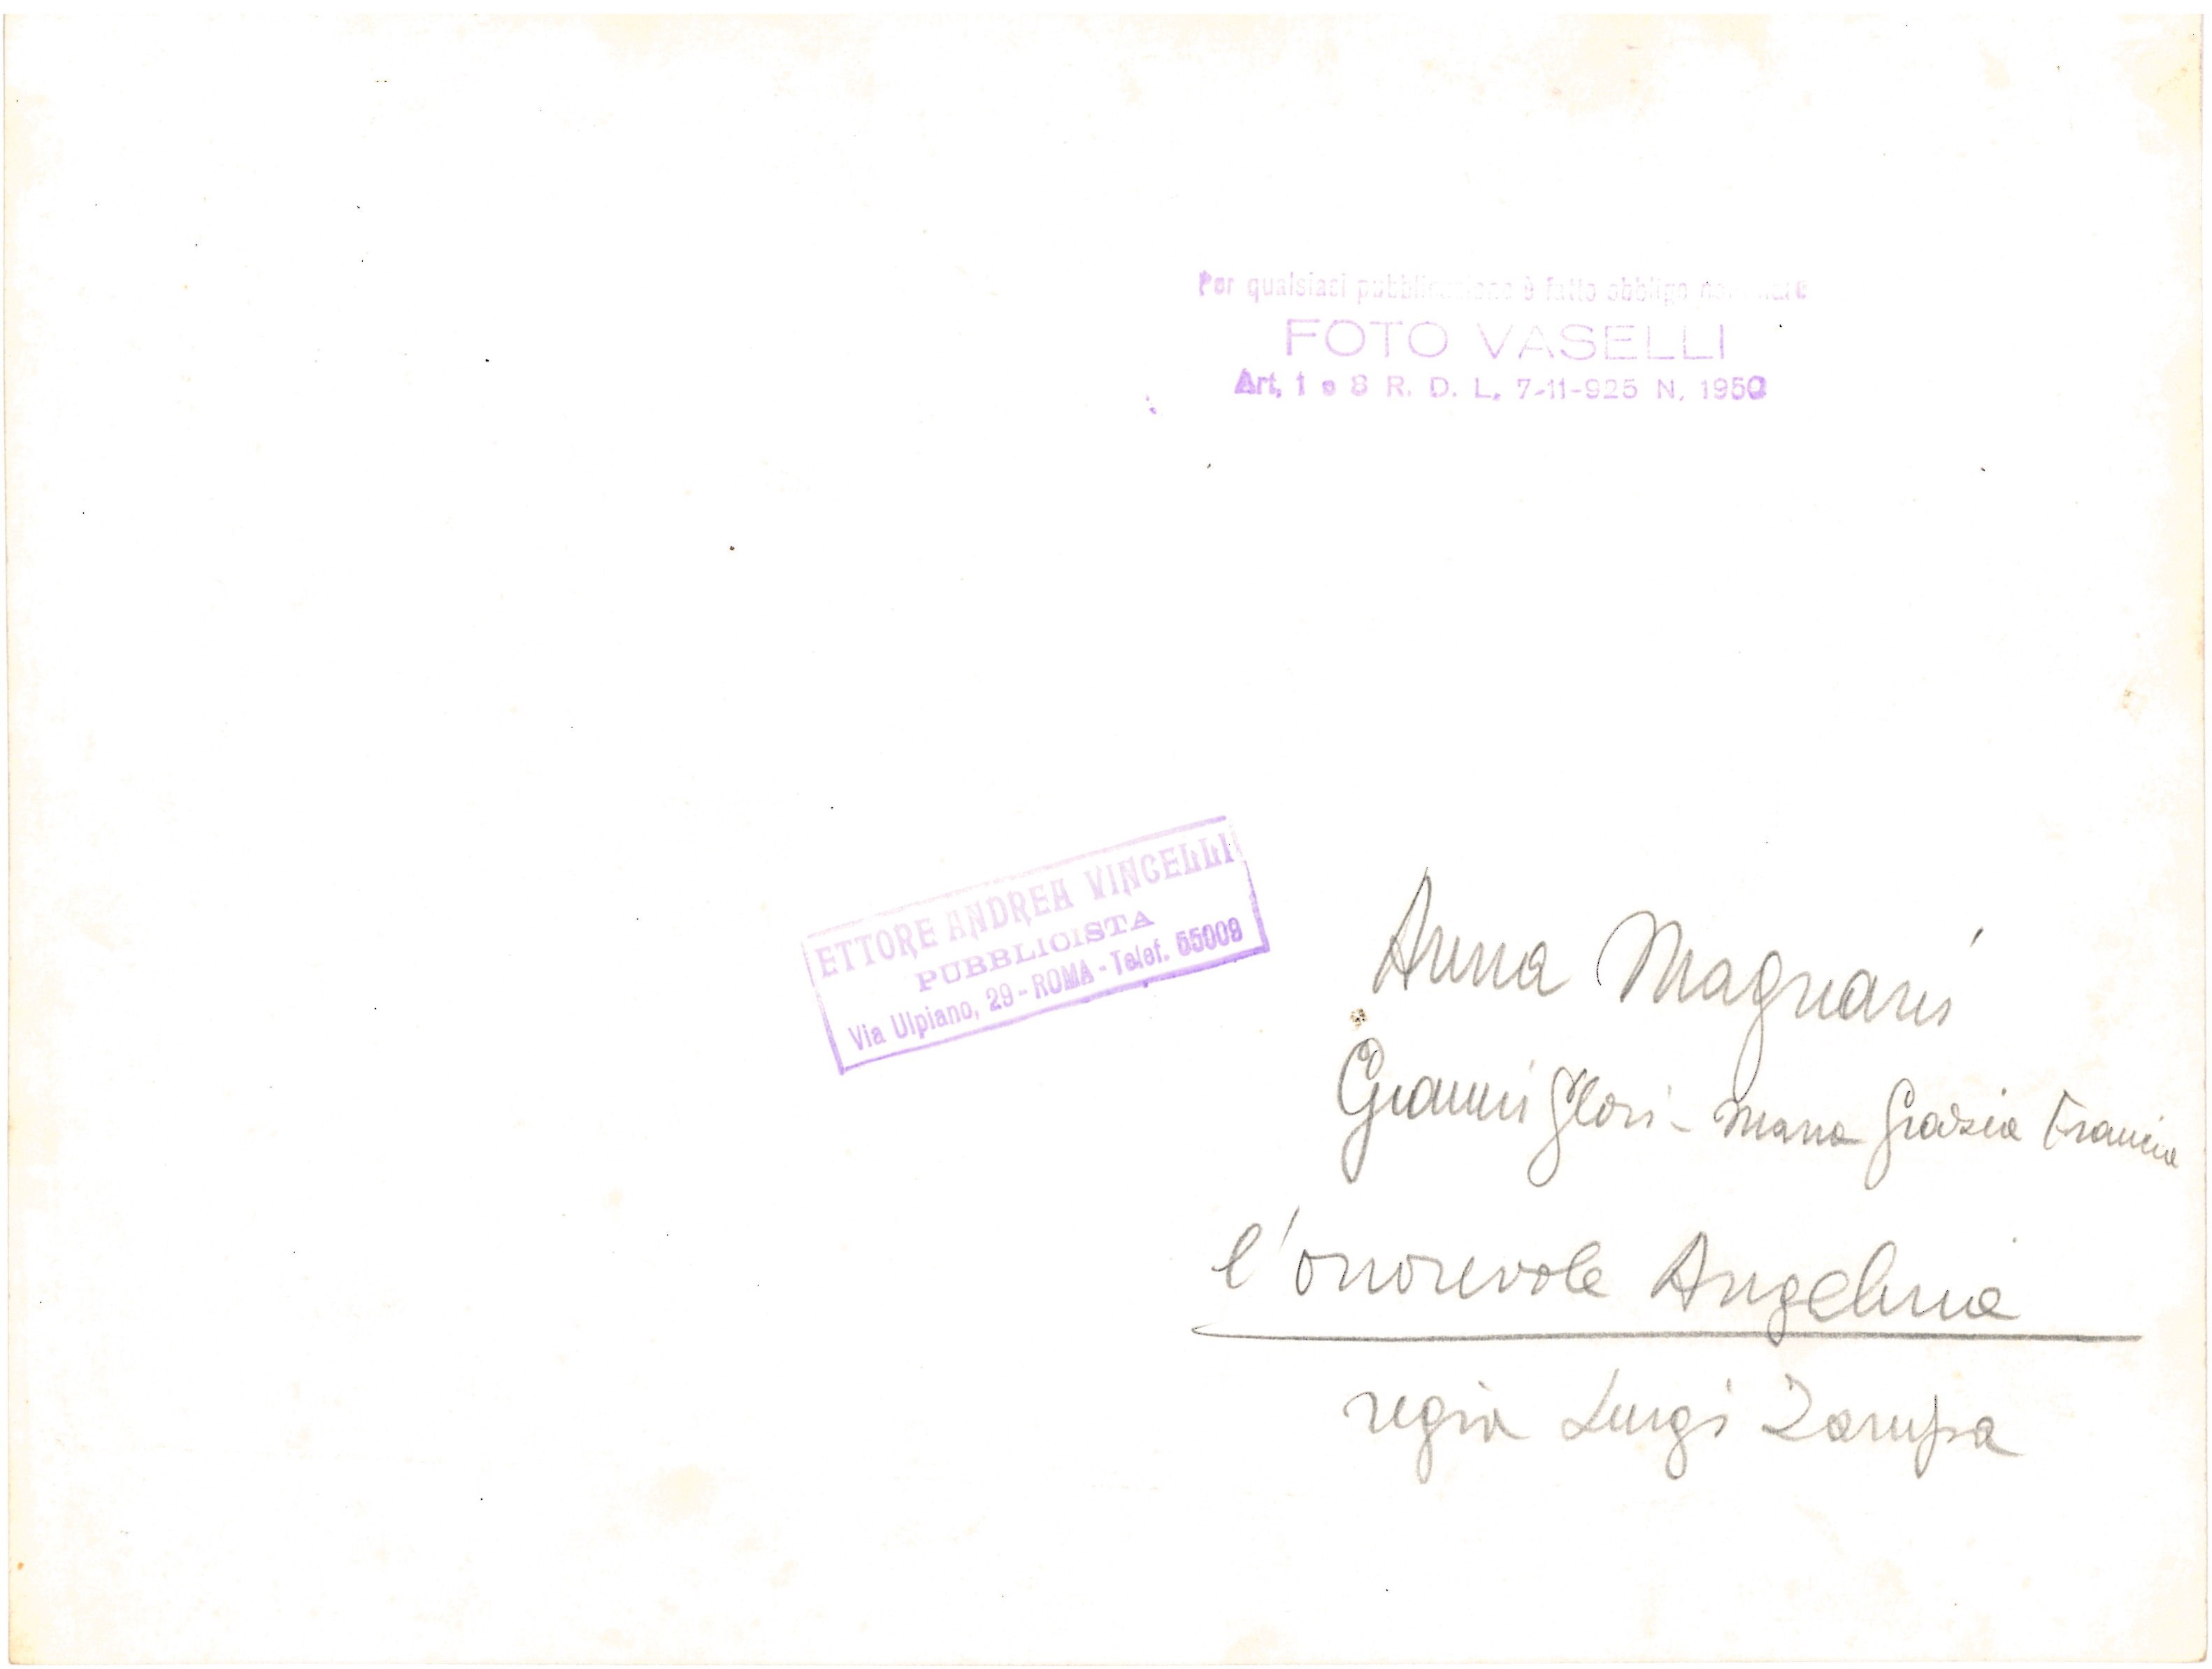 Per qualsiasi pubblicazione è fatto obbligo
FOTO VASELLI
Art. 1 e 8 R. D. L. 7-11-925 N. 1950
ETTORE ANDREA VINCELLI
PUBBLICISTA
Via Ulpiano, 29 - ROMA - Telef. 55009
Anna Magnani
Gianni Glori - Maria Grazia Francia
l'onorevole Angelina
regia Luigi Zampa